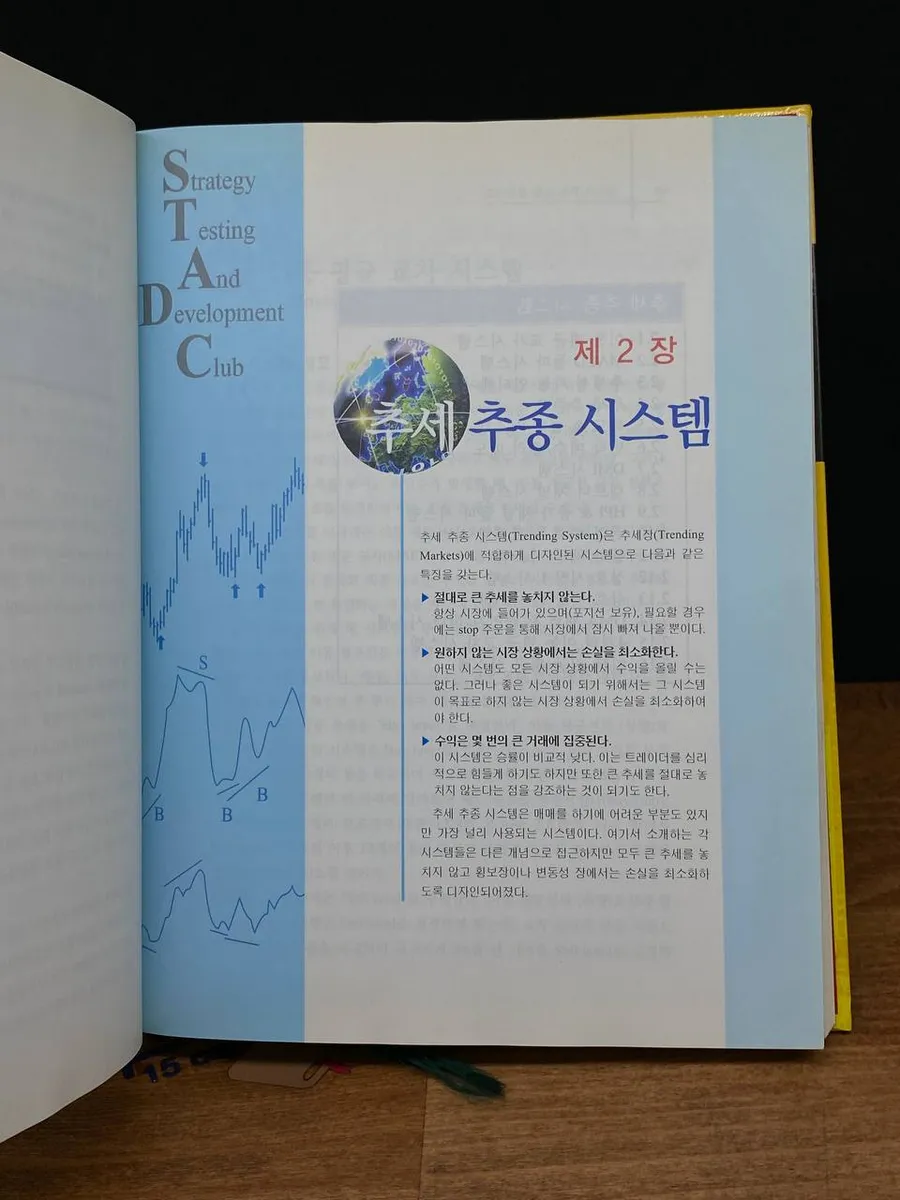 Strategy
Testing
And
Development
Club
S
B
B
B
제 2 장
추세 추종 시스템
추세 추종 시스템(Trending System)은 추세장(Trending
Markets)에 적합하게 디자인된 시스템으로 다음과 같은
특징을 갖는다.
▶ 절대로 큰 추세를 놓치지 않는다.
항상 시장에 들어가 있으며(포지션 보유), 필요할 경우
에는 stop 주문을 통해 시장에서 잠시 빠져 나올 뿐이다.
▶ 원하지 않는 시장 상황에서는 손실을 최소화한다.
어떤 시스템도 모든 시장 상황에서 수익을 올릴 수는
없다. 그러나 좋은 시스템이 되기 위해서는 그 시스템
이 목표로 하지 않는 시장 상황에서 손실을 최소화하여
야 한다.
▶ 수익은 몇 번의 큰 거래에 집중된다.
이 시스템은 승률이 비교적 낮다. 이는 트레이더를 심리
적으로 힘들게 하기도 하지만 또한 큰 추세를 절대로 놓
치지 않는다는 점을 강조하는 것이 되기도 한다.
추세 추종 시스템은 매매를 하기에 어려운 부분도 있지
만 가장 널리 사용되는 시스템이다. 여기서 소개하는 각
시스템들은 다른 개념으로 접근하지만 모두 큰 추세를 놓
치지 않고 횡보장이나 변동성 장에서는 손실을 최소화하
도록 디자인되어졌다.
15